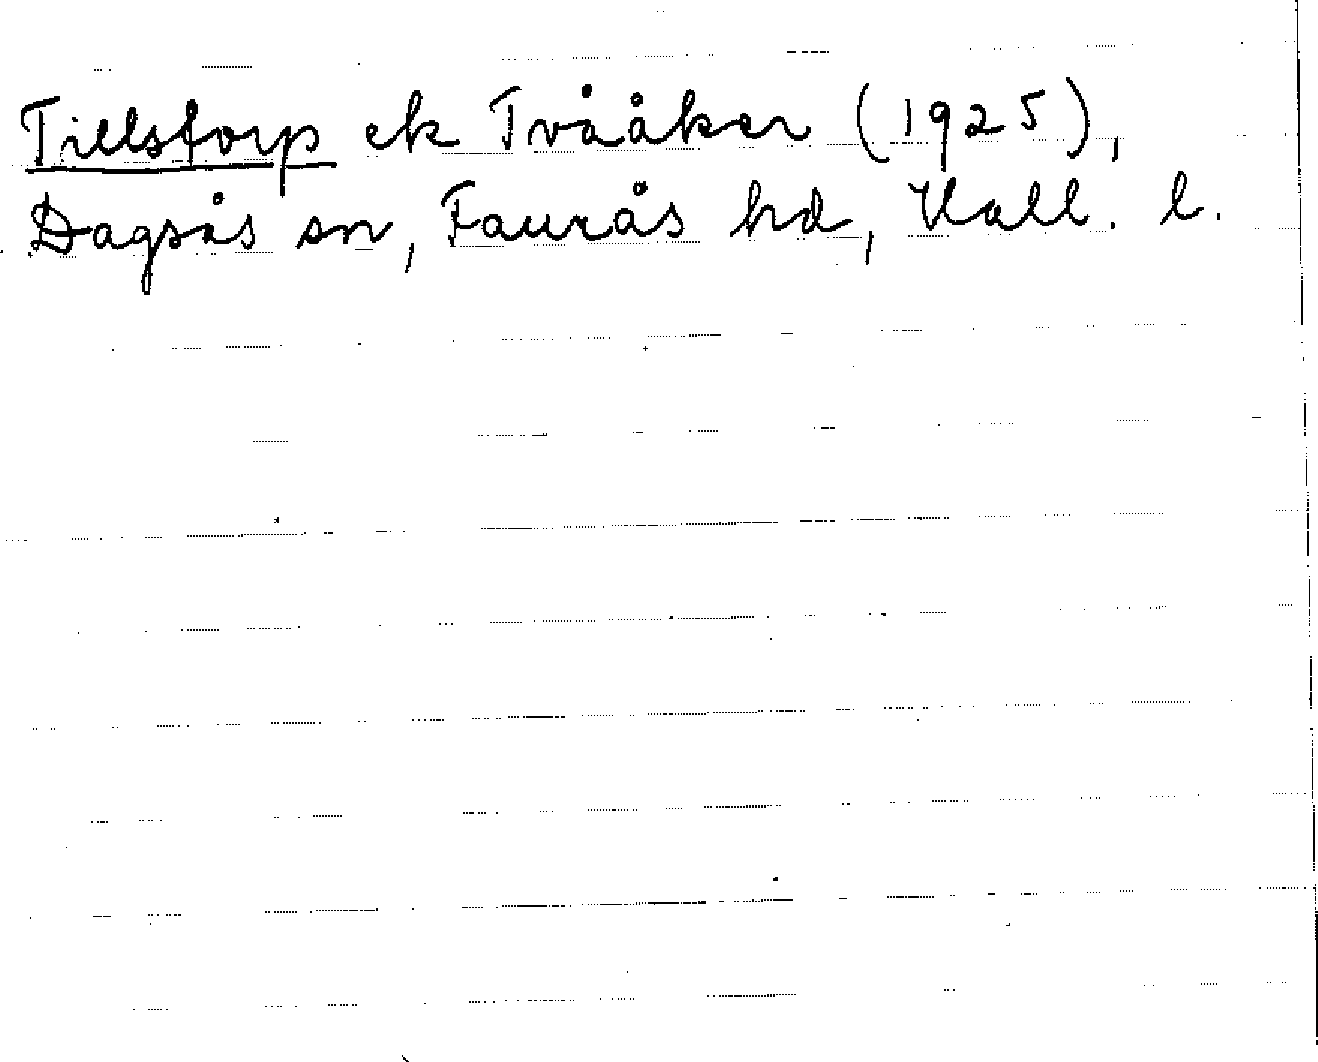 Tillstorp ek Tvååker (1925),
Dagsås sn, Faurås hd, Hall. l.